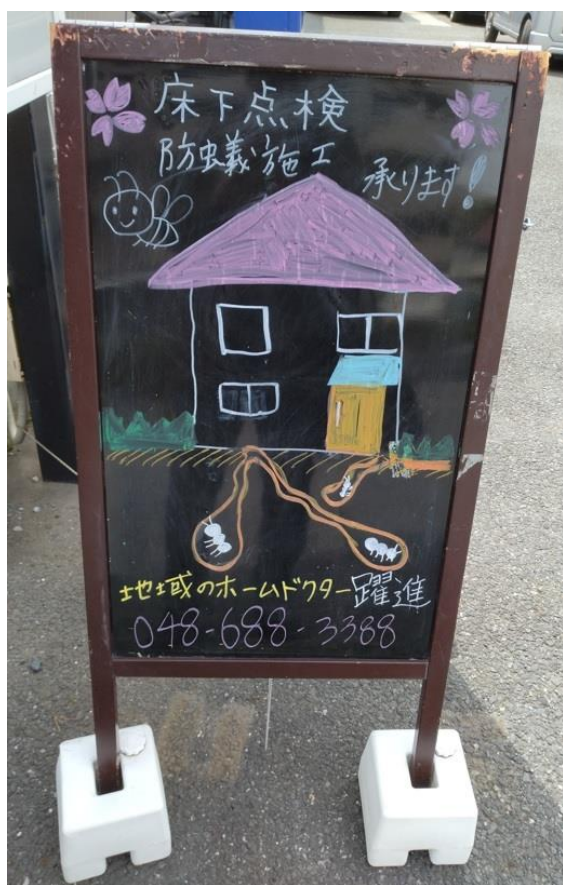 床下点検
防虫蟻施工
承ります!
地域のホームドクター躍進
048-688-3388